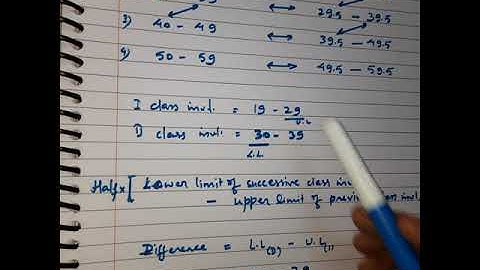 29.5 - 39.5
3) 40 - 49 ↔ 39.5 - 49.5
4) 50 - 59 ↔ 49.5 - 59.5
I class invl. = 19 - 29
U.L
II class invl. = 30 - 39
L.L.
Half × [ Lower limit of successive class
- upper limit of
Difference = L.L(II) - U.L(I)